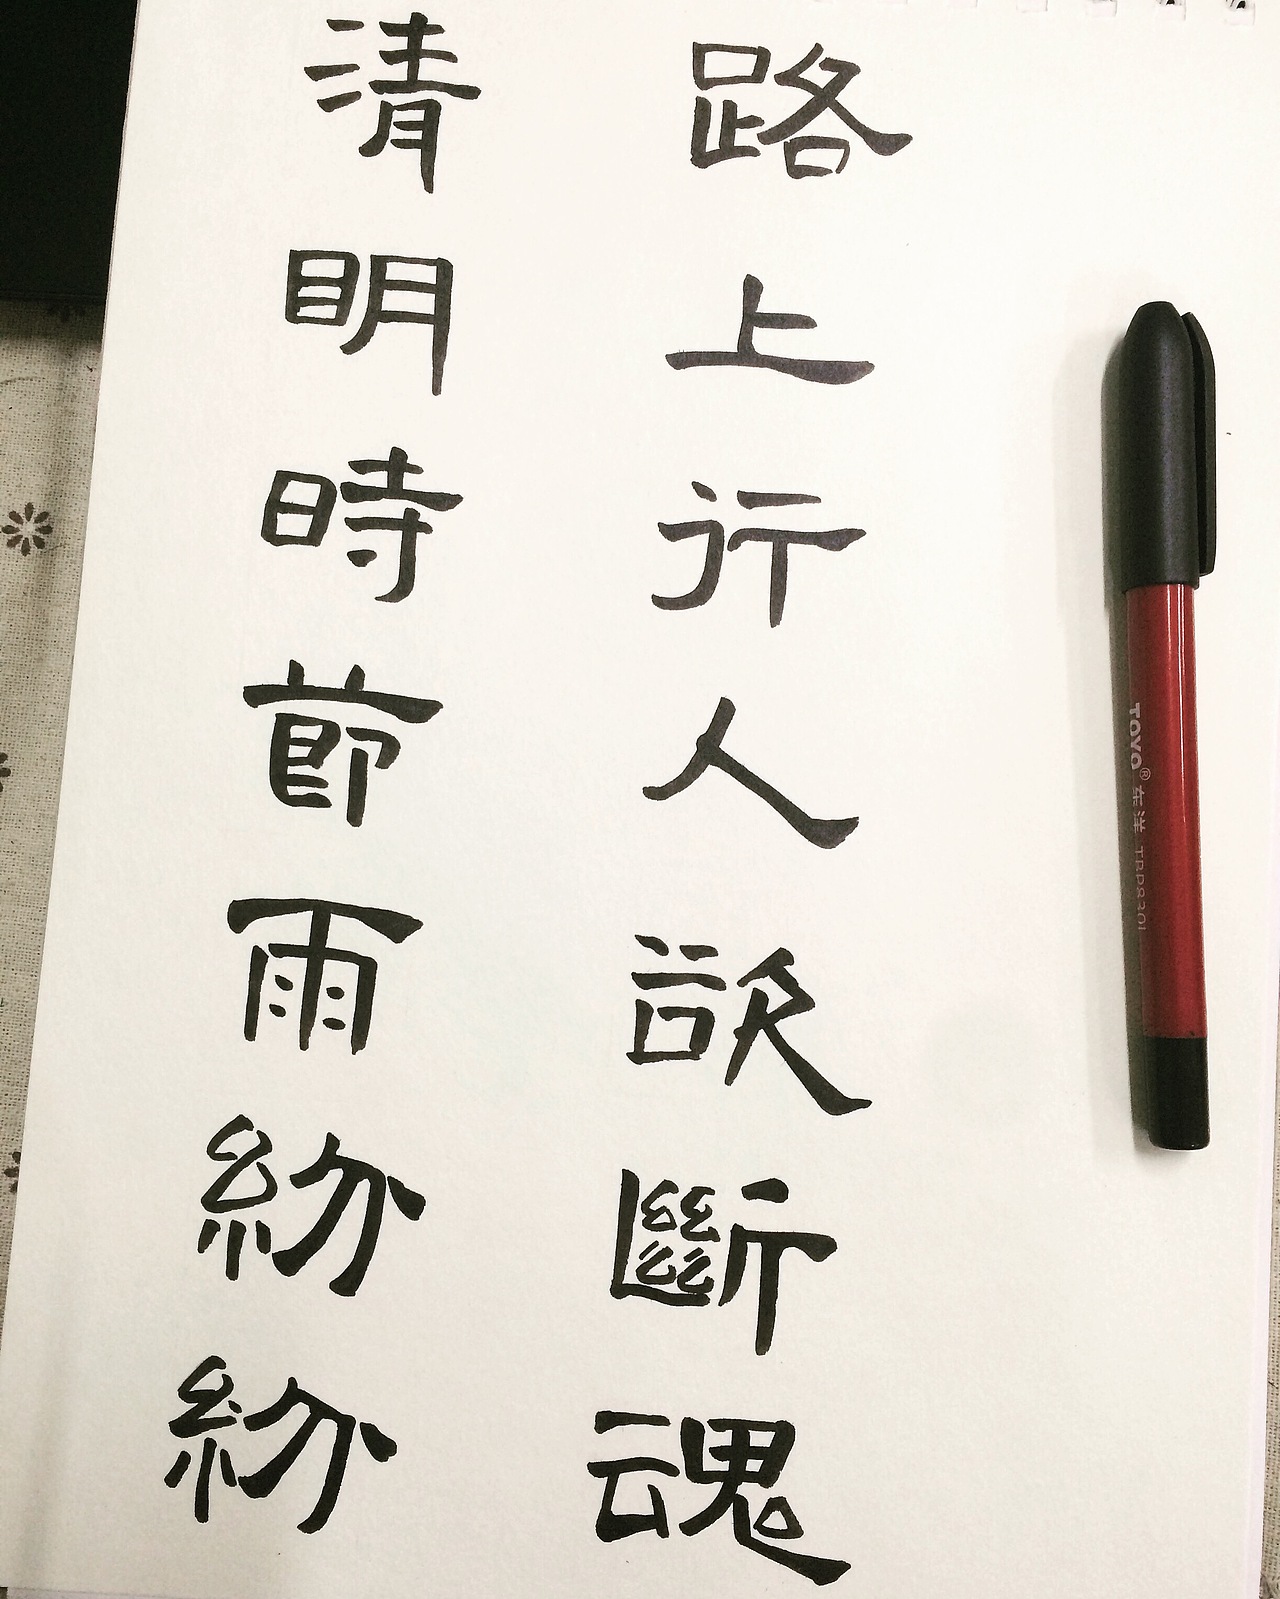 清明時節雨紛紛
路上行人欲斷魂
TOYO® 东洋 TRP8301